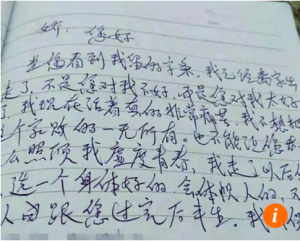 娇: 您好
当您看到我留的字条,我已经离家出
走了,不是您对我不好,而是您对我太好
了,我现在活着真的非常痛苦,我不想把
这个家败的一无所有,也不能让您
么照顾我虚度青春,我走了以后
选一个身体好的,会体贴人的,
人内跟您过完后半生,我